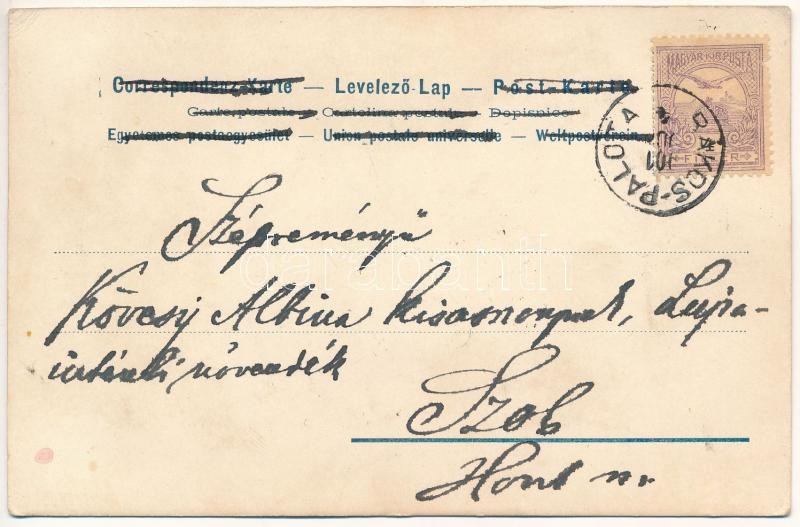 Correspondenz-Karte — Levelező-Lap — Post-Karte
Carte postale — Cartolina postale — Dopisnice
Egyetemes postaegyesület — Union postale universelle — Weltpostverein
MAGYAR KIR. POSTA
RÁKOS-PALOTA
Szépreményű
Kövesy Albina kisasszonynak, Lujza-
intézeti növendék
Szob
Hont m.
darabanth